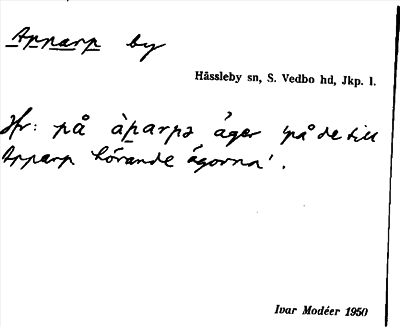 Apparp by
Hässleby sn, S. Vedbo hd, Jkp. l.
Jfr: på àparpə ágər 'på de till
Apparp hörande ägorna'.
Ivar Modéer 1950